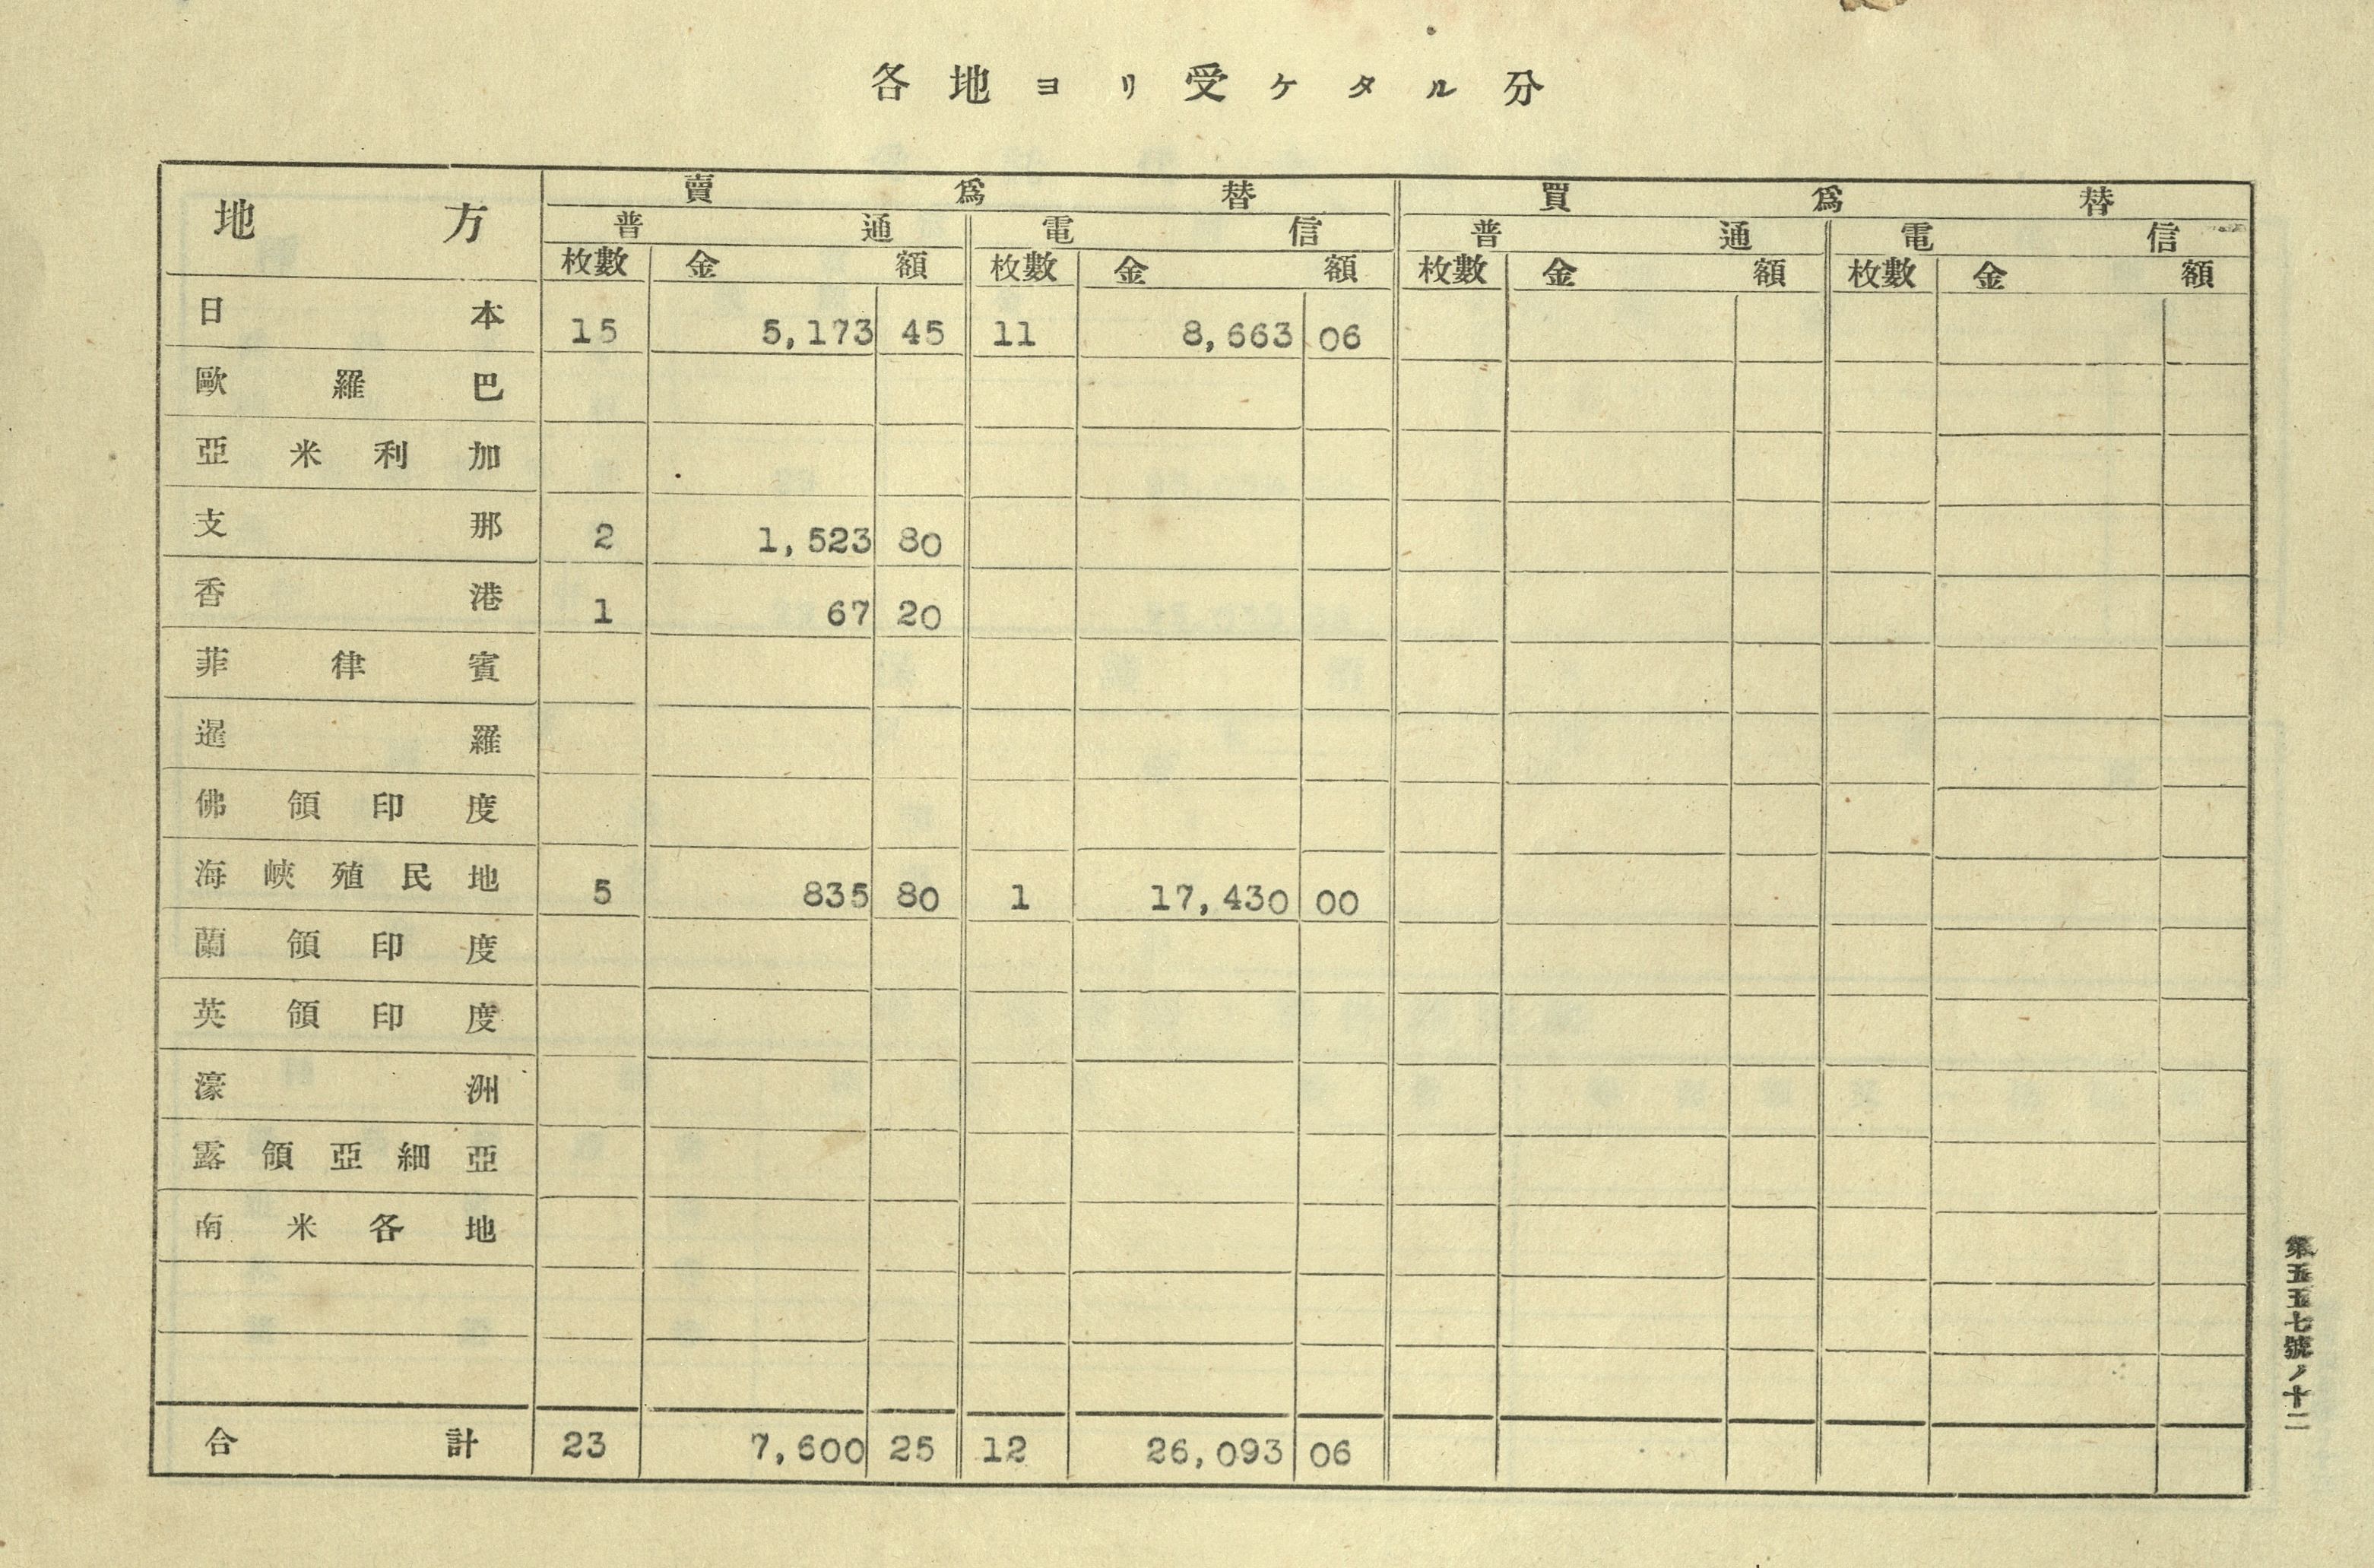 各地ヨリ受ケタル分
地方 賣爲替 買爲替
普通 電信 普通 電信
枚數 金額 枚數 金額 枚數 金額 枚數 金額
日本 15 5,173 45 11 8,663 06
歐羅巴
亞米利加
支那 2 1,523 80
香港 1 67 20
菲律賓
暹羅
佛領印度
海峽殖民地 5 835 80 1 17,430 00
蘭領印度
英領印度
濠洲
露領亞細亞
南米各地
合計 23 7,600 25 12 26,093 06
第五五七號ノ十二